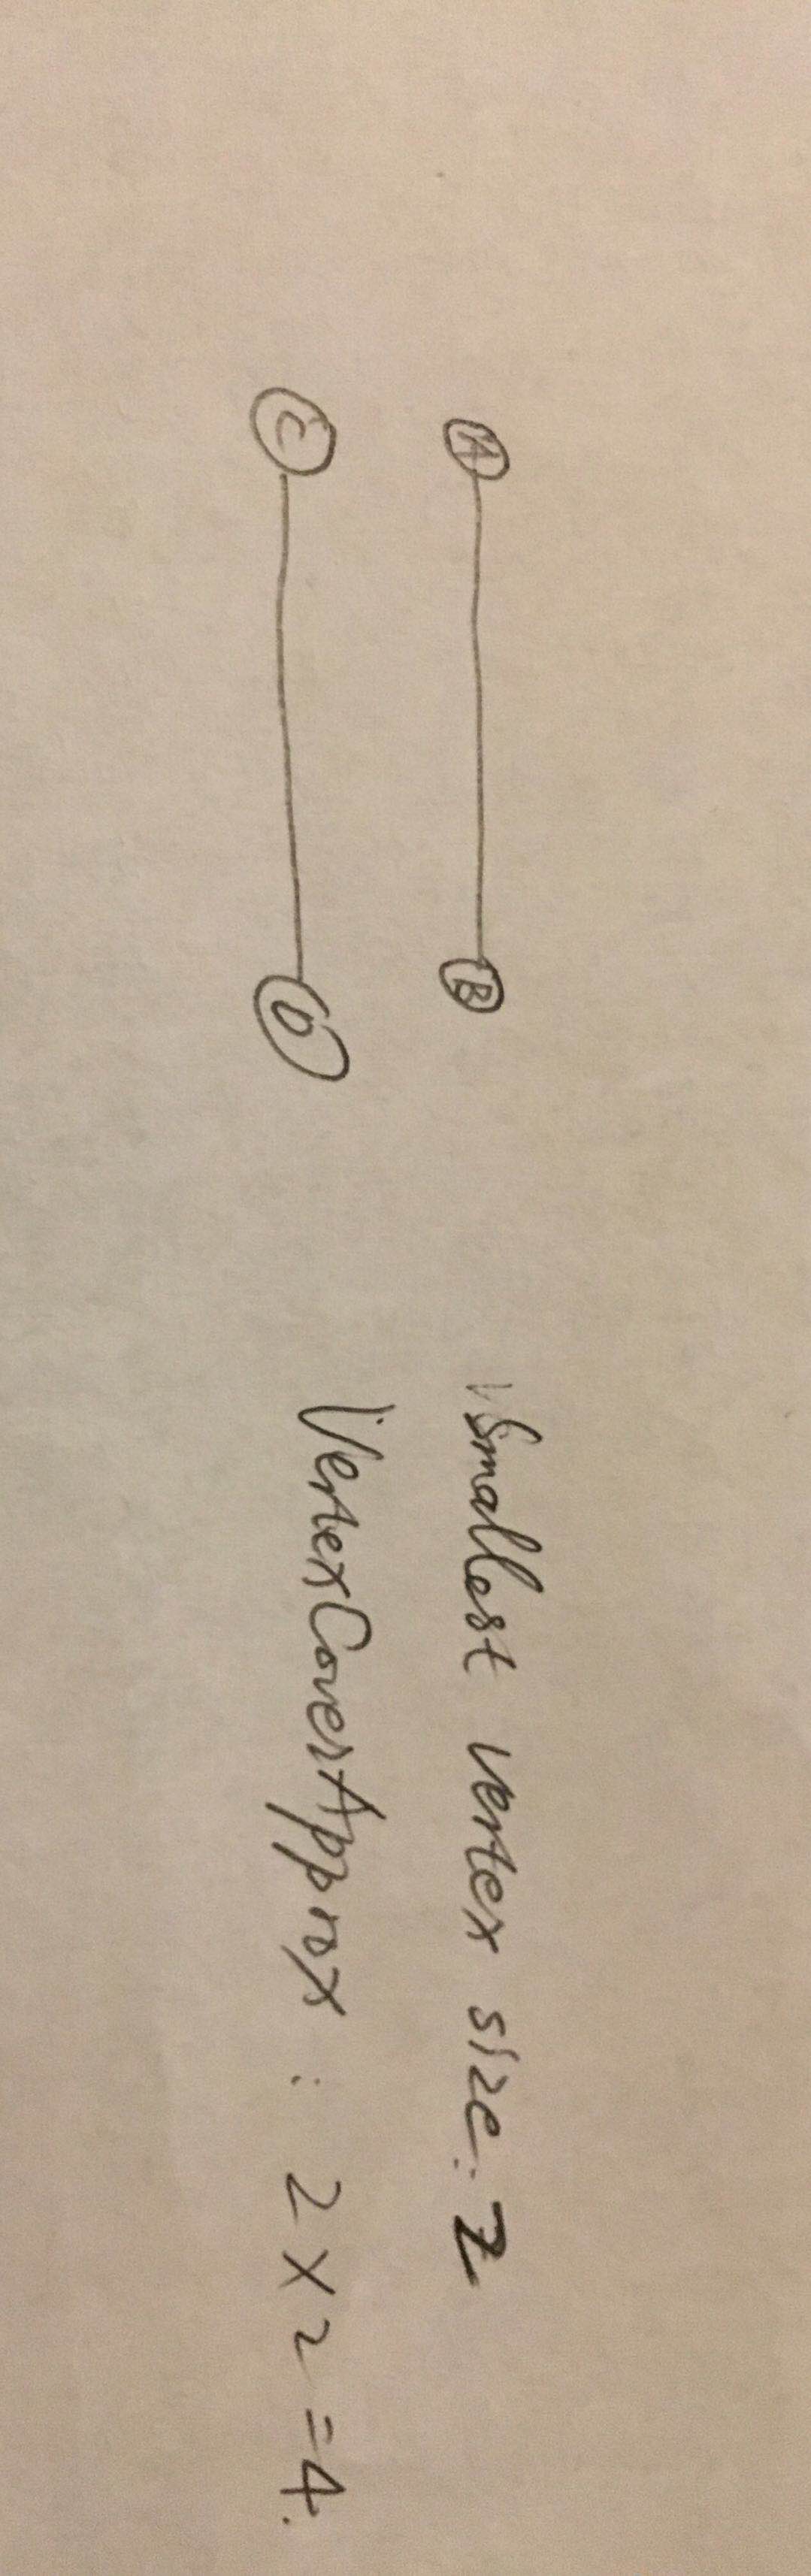 A B
Smallest vertex size: 2
C D
VertexCoverApprox : 2 x 2 = 4.